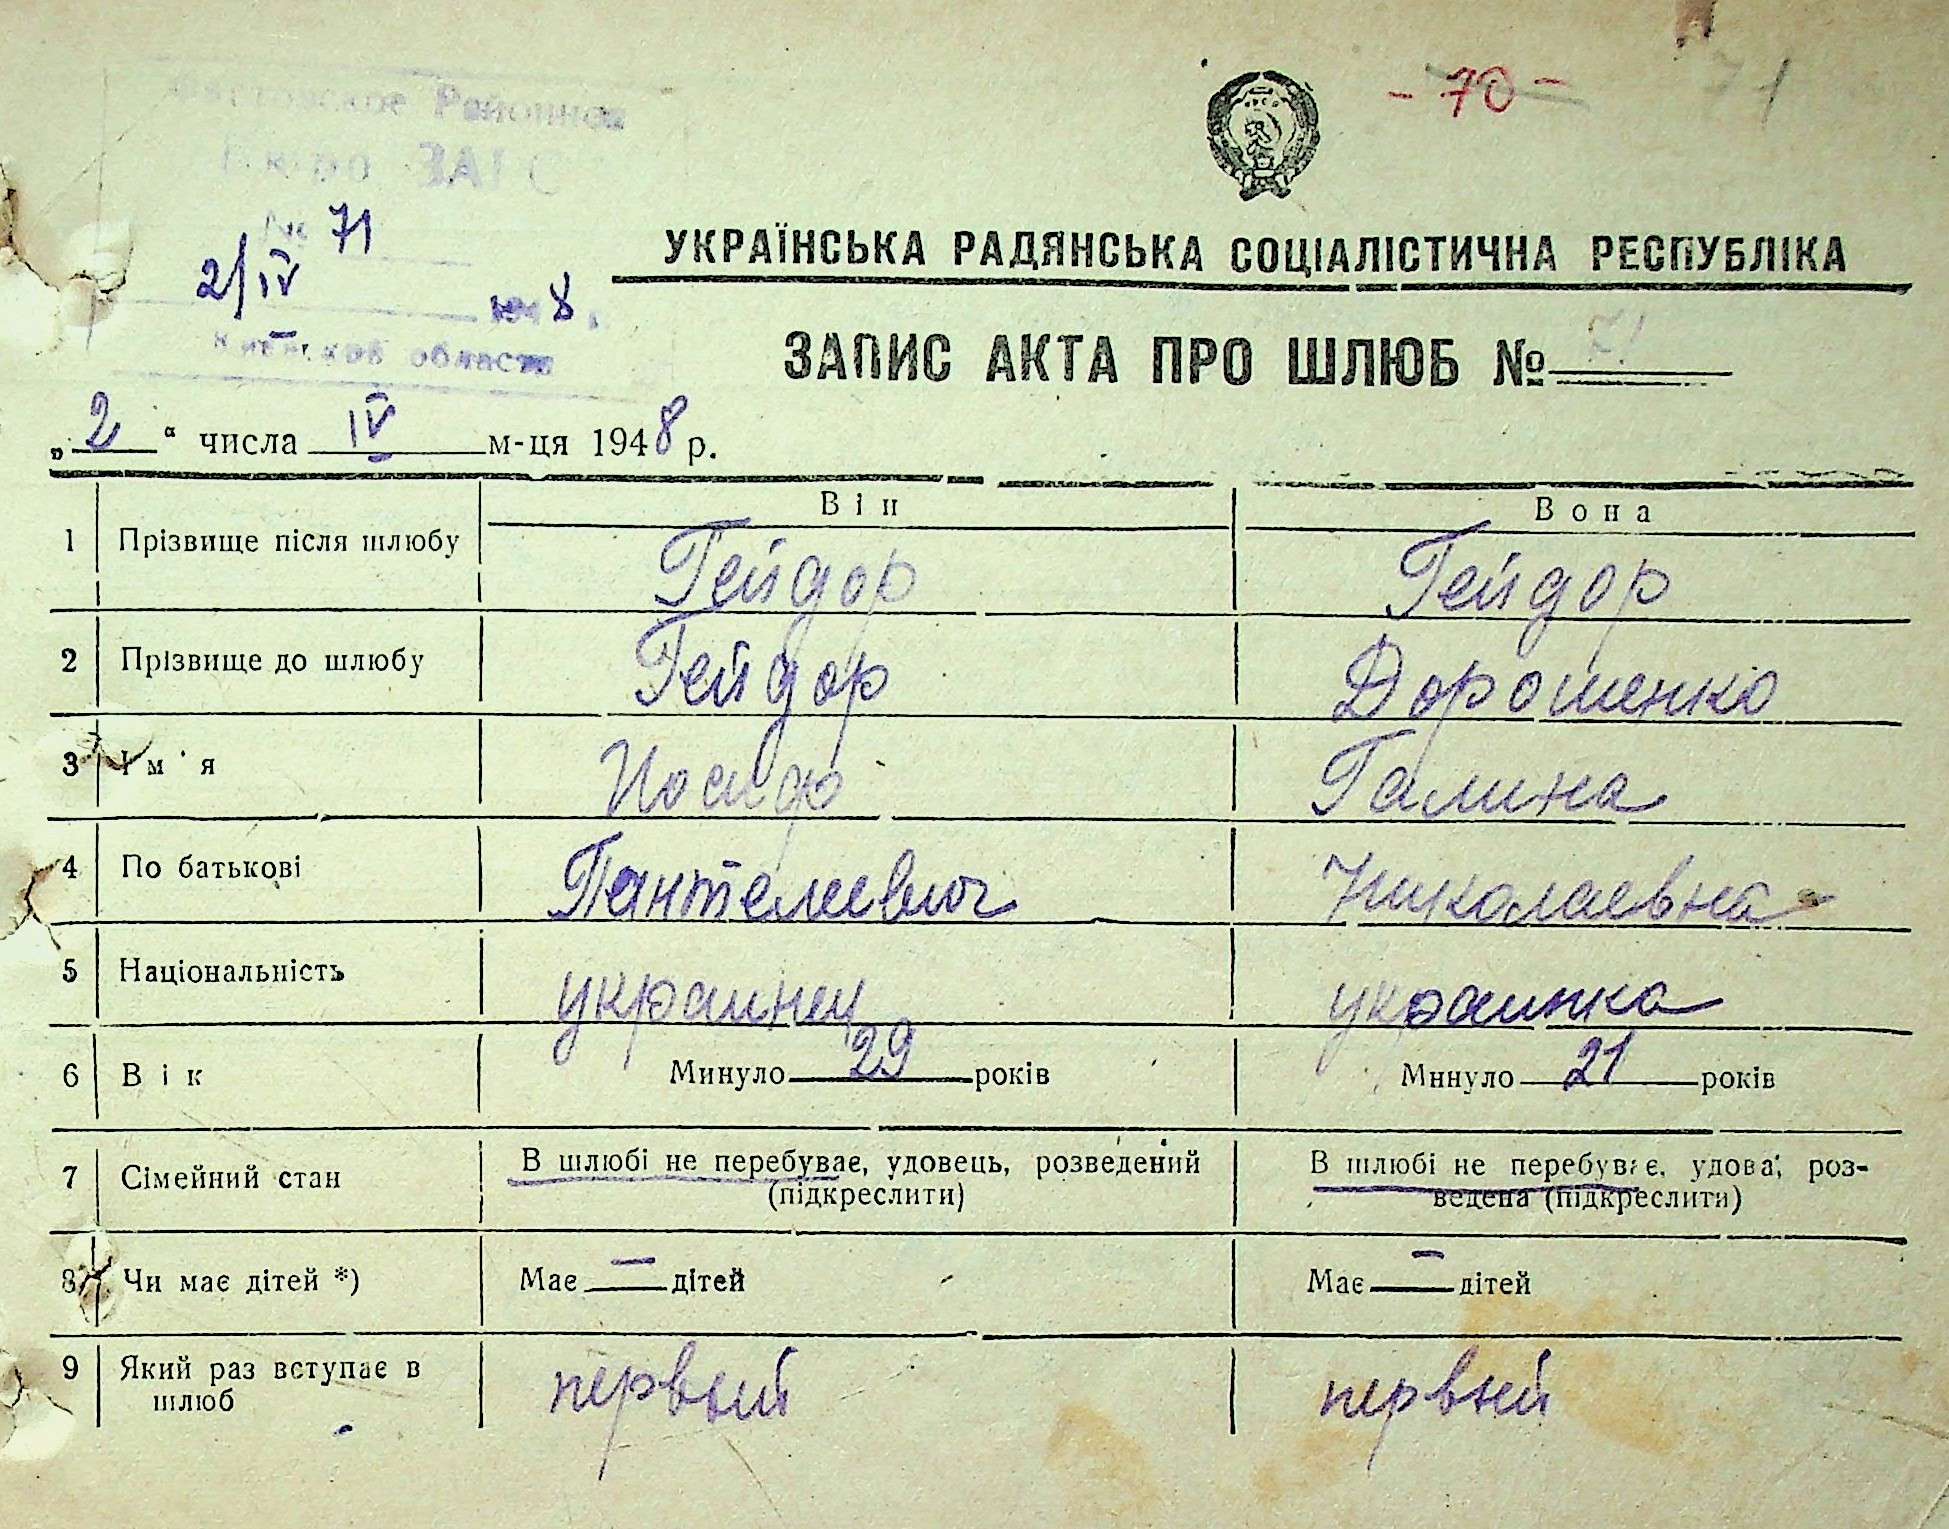 - 70 -
71
Районное
Бюро ЗАГС
№ 71
2/IV 1948 г.
Киевской области
УКРАЇНСЬКА РАДЯНСЬКА СОЦІАЛІСТИЧНА РЕСПУБЛІКА
ЗАПИС АКТА ПРО ШЛЮБ № 71
„2“ числа IV м-ця 1948 р.
Він Вона
1 Прізвище після шлюбу Гейдор Гейдор
2 Прізвище до шлюбу Гейдор Дорошенко
3 Ім'я Иосиф Галина
4 По батькові Пантелеевич Николаевна
5 Національність украинец украинка
6 Вік Минуло 29 років Минуло 21 років
7 Сімейний стан В шлюбі не перебуває, удовець, розведений В шлюбі не перебуває, удова, роз-
(підкреслити) ведена (підкреслити)
8 Чи має дітей *) Має — дітей Має — дітей
9 Який раз вступає в первый первый
шлюб